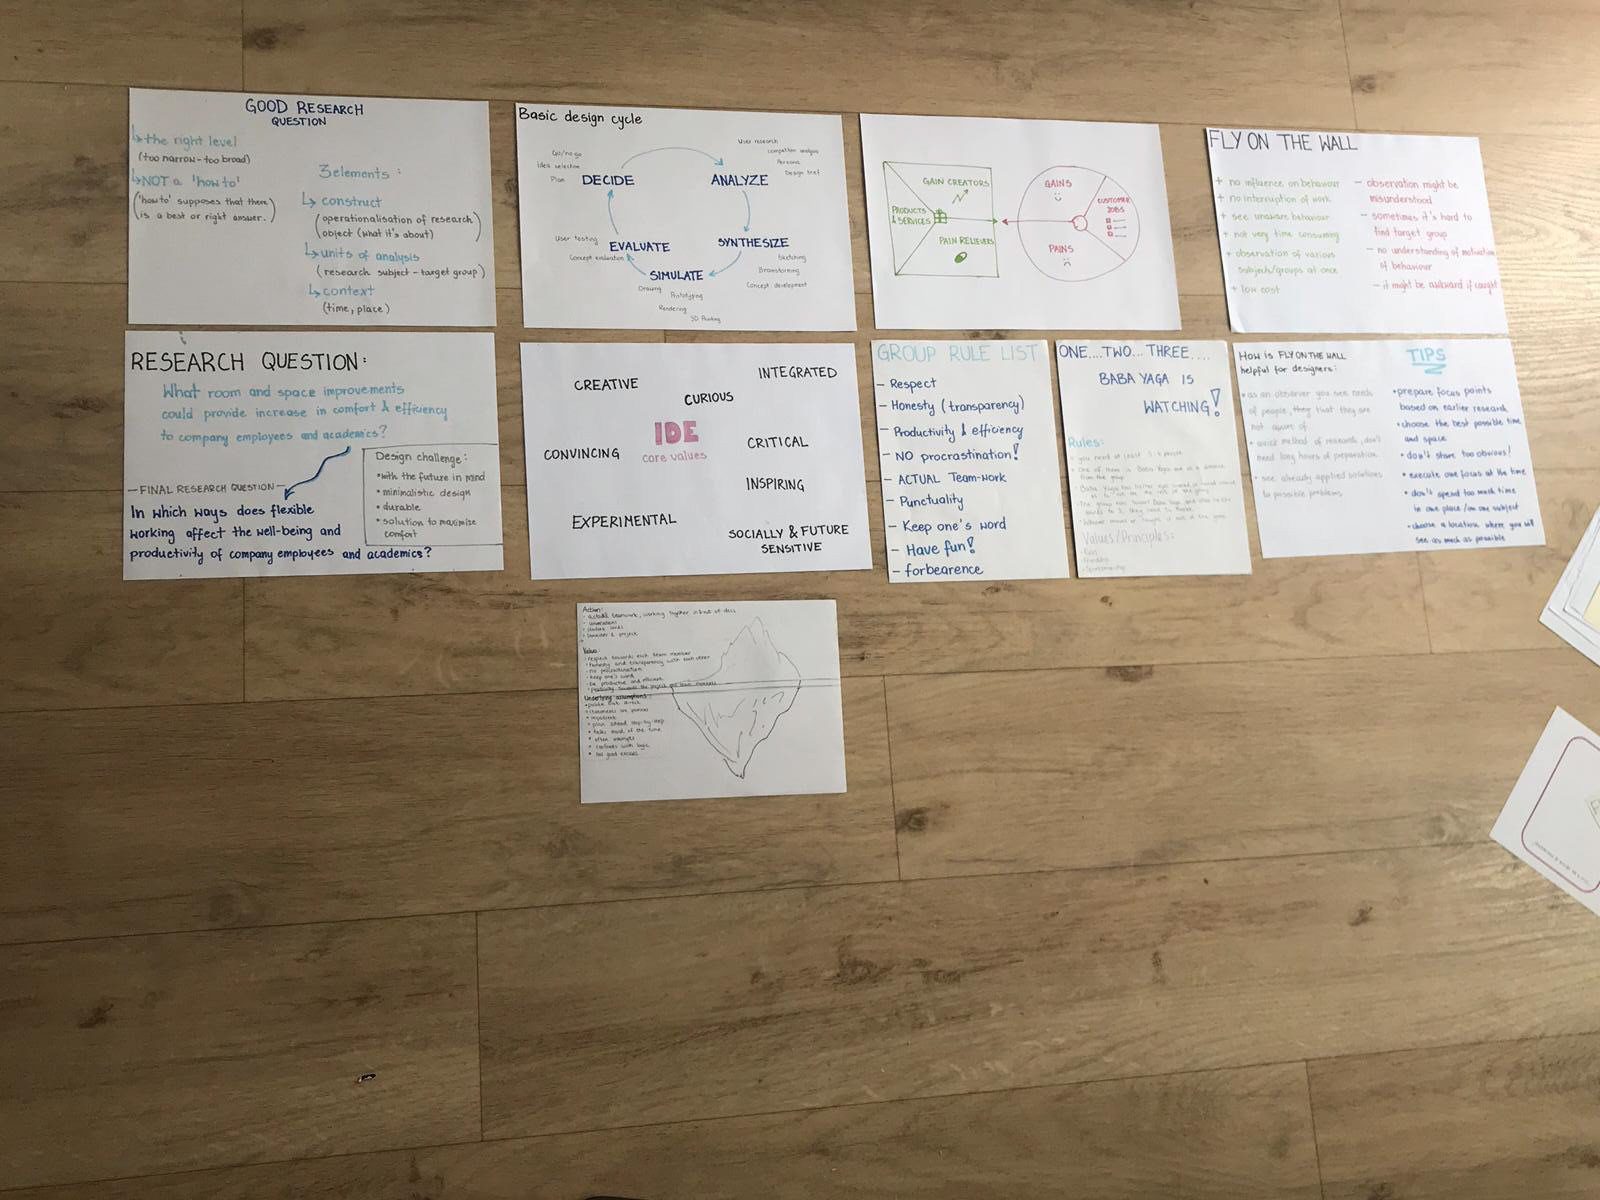 GOOD RESEARCH
QUESTION
↳ the right level
(too narrow - too broad)
↳ NOT a 'how to'
('how to' supposes that there
is a best or right answer.)
3 elements :
↳ construct
(operationalisation of research)
object (what it's about)
↳ units of analysis
(research subject - target group)
↳ context
(time, place)
Basic design cycle
Go/no go
Idea selection
Plan
DECIDE
User research
competitor analysis
Persona
Design brief
ANALYZE
User testing
Concept evaluation
EVALUATE
SYNTHESIZE
Sketching
Brainstorming
Concept development
SIMULATE
Drawing
Prototyping
Rendering
3D Printing
GAIN CREATORS
PRODUCTS
& SERVICES
PAIN RELIEVERS
GAINS
CUSTOMER
JOBS
PAINS
FLY ON THE WALL
+ no influence on behaviour
+ no interruption of work
+ see unaware behaviour
+ not very time consuming
+ observation of various
subjects/groups at once
+ low cost
- observation might be
misunderstood
- sometimes it's hard to
find target group
- no understanding of motivation
of behaviour
- it might be awkward if caught
RESEARCH QUESTION:
What room and space improvements
could provide increase in comfort & efficiency
to company employees and academics?
- FINAL RESEARCH QUESTION -
In which ways does flexible
working affect the well-being and
productivity of company employees and academics?
Design challenge:
• with the future in mind
• minimalistic design
• durable
• solution to maximize
comfort
CREATIVE
INTEGRATED
CURIOUS
IDE
core values
CONVINCING
CRITICAL
INSPIRING
EXPERIMENTAL
SOCIALLY & FUTURE
SENSITIVE
GROUP RULE LIST
- Respect
- Honesty (transparency)
- Productivity & efficiency
- NO procrastination!
- ACTUAL Team-work
- Punctuality
- Keep one's word
- Have fun!
- forbearence
ONE....TWO... THREE....
BABA YAGA IS
WATCHING!
Rules:
• you need at least 3-4 people
from the group
Values/Principles:
- Friendship
- Sportsmanship
How is FLY ON THE WALL
helpful for designers:
• as an observer you see needs
of people, they that they are
not aware of
• quick method of research, don't
need long hours of preparation
• see already applied solutions
to possible problems
TIPS
• prepare focus points
based on earlier research
• choose the best possible time
and space
• don't stare too obvious!
• execute one focus at the time
• don't spend too much time
in one place/on one subject
• choose a location where you will
see as much as possible
Action:
- actual teamwork, working together
Value:
• respect towards each team member
• honesty and transparency with each other
• no procrastination
• keep one's word
• be productive and efficient
Underlying assumptions:
• plan ahead step-by-step
• talks most of the time
• often interrupts
• confronts with logic